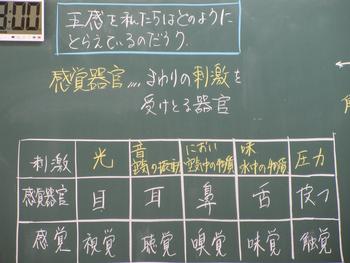 :00
五感を私たちはどのように
とらえているのだろう.
感覚器官,,,, まわりの刺激を
受けとる器官
刺激 光 音 空気の振動 におい 空気中の物質 味 水中の物質 圧力
感覚器官 目 耳 鼻 舌 皮フ
感覚 視覚 聴覚 嗅覚 味覚 触覚